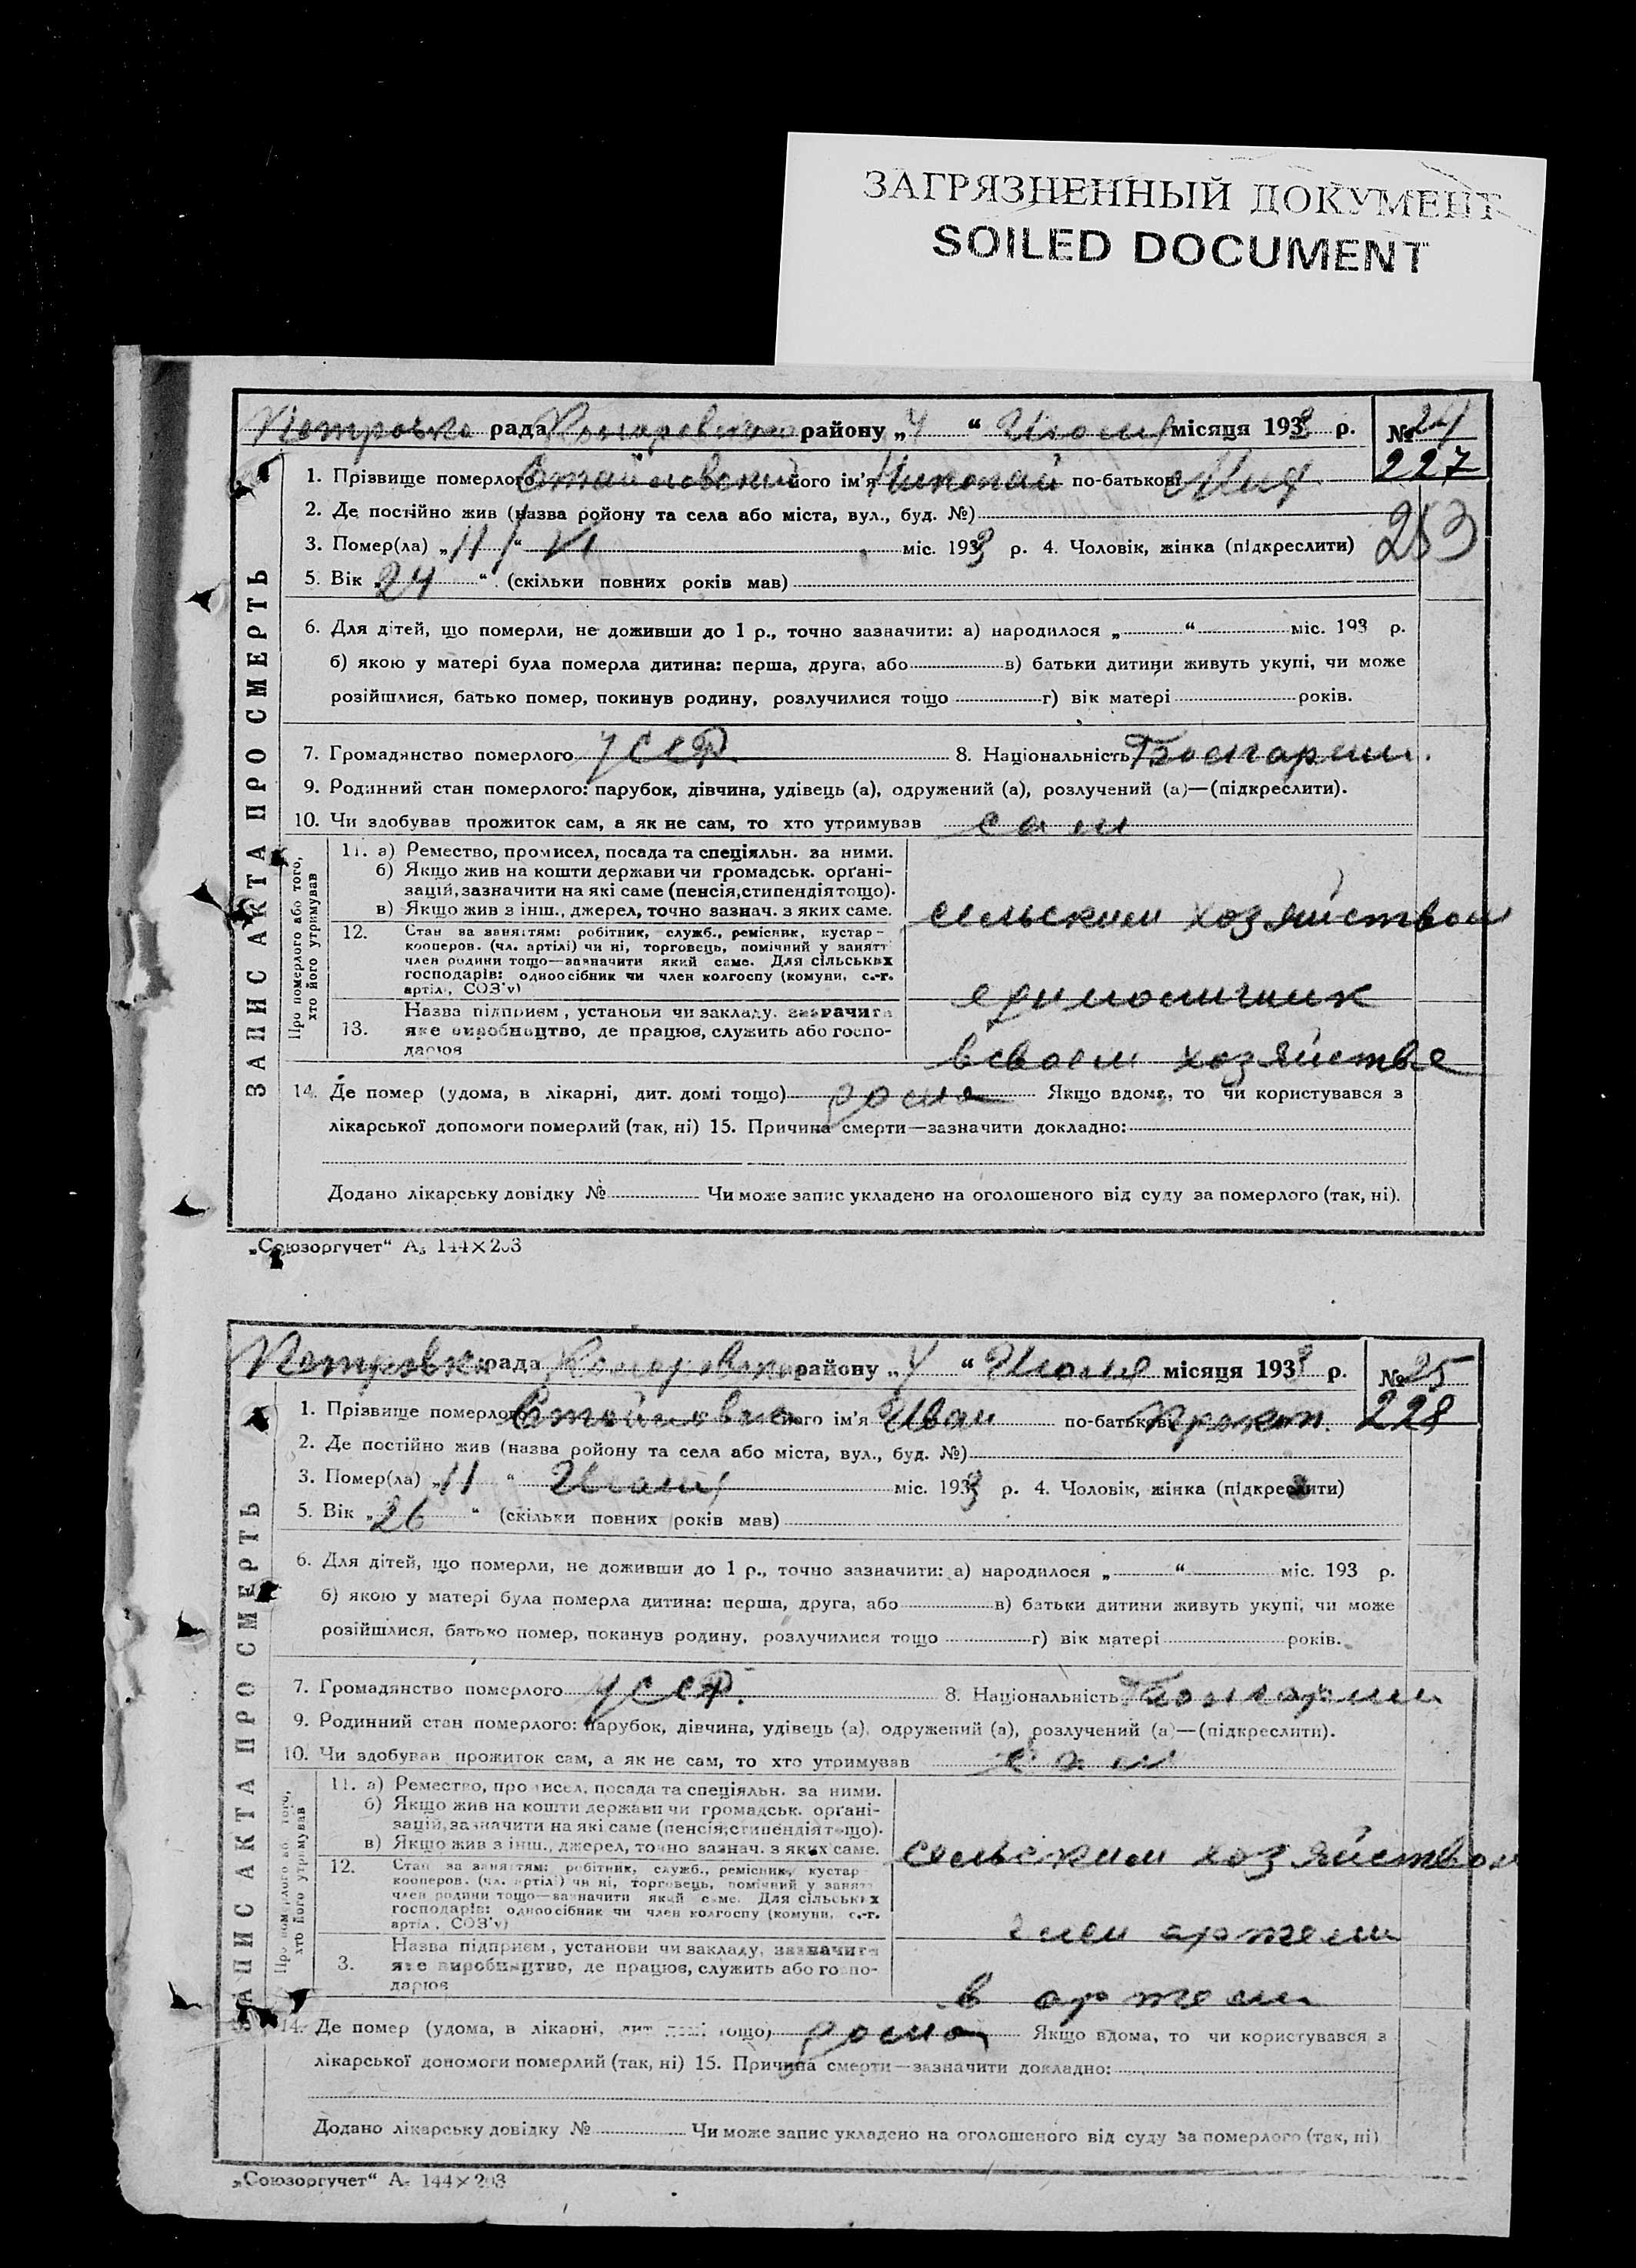 ЗАГРЯЗНЕННЫЙ ДОКУМЕНТ
SOILED DOCUMENT
Петровка рада района „4“ Июля місяця 193 р. № 24
227
1. Прізвище померлого його ім'я Николай по-батькові
2. Де постійно жив (назва ройону та села або міста, вул., буд. №)
253
3. Помер(ла) „11“ VI міс. 193 р. 4. Чоловік, жінка (підкреслити)
5. Вік „24“ (скільки повних років мав)
6. Для дітей, що померли, не доживши до 1 р., точно зазначити: а) народилося „ “ міс. 193 р.
б) якою у матері була померла дитина: перша, друга, або в) батьки дитини живуть укупі, чи може
розійшлися, батько помер, покинув родину, розлучилися тощо г) вік матері років.
7. Громадянство померлого УССР. 8. Національність Болгарин.
9. Родинний стан померлого: парубок, дівчина, удівець (а), одружений (а), розлучений (а)—(підкреслити).
10. Чи здобував прожиток сам, а як не сам, то хто утримував сам
ЗАПИС АКТА ПРО СМЕРТЬ
Про померлого або того, хто його утримував
11. а) Ремество, промисел, посада та спеціяльн. за ними.
б) Якщо жив на кошти держави чи громадськ. орґані-
зацій, зазначити на які саме (пенсія, стипендія тощо).
в) Якщо жив з інш., джерел, точно зазнач. з яких саме. сельским хозяйством
12. Стан за заняттям: робітник, служб., ремісник, кустар-
кооперов. (чл. артілі) чи ні, торговець, помічний у занятт
член родини тощо—зазначити який саме. Для сільських
господарів: одноосібник чи член колгоспу (комуни, с.-г.
артіл., СОЗ'у) единоличник
13. Назва підприєм., установи чи закладу, зазначити
яке виробництво, де працює, служить або госпо-
дарює в своем хозяйстве
14. Де помер (удома, в лікарні, дит. домі тощо) дома Якщо вдома, то чи користувався з
лікарської допомоги померлий (так, ні) 15. Причина смерти—зазначити докладно:
Додано лікарську довідку № Чи може запис укладено на оголошеного від суду за померлого (так, ні).
„Союзоргучет“ А5 144×203
Петровка рада району „4“ Июля місяця 193 р. № 25
228
1. Прізвище померлого його ім'я Иван по-батькові Прокоп.
2. Де постійно жив (назва ройону та села або міста, вул., буд. №)
3. Помер(ла) „11“ міс. 193 р. 4. Чоловік, жінка (підкреслити)
5. Вік „26“ (скільки повних років мав)
6. Для дітей, що померли, не доживши до 1 р., точно зазначити: а) народилося „ “ міс. 193 р.
б) якою у матері була померла дитина: перша, друга, або в) батьки дитини живуть укупі, чи може
розійшлися, батько помер, покинув родину, розлучилися тощо г) вік матері років.
7. Громадянство померлого УССР. 8. Національність Болгарин
9. Родинний стан померлого: парубок, дівчина, удівець (а), одружений (а), розлучений (а)—(підкреслити).
10. Чи здобував прожиток сам, а як не сам, то хто утримував сам
ЗАПИС АКТА ПРО СМЕРТЬ
Про померлого або того, хто його утримував
11. а) Ремество, промисел, посада та спеціяльн. за ними.
б) Якщо жив на кошти держави чи громадськ. орґані-
зацій, зазначити на які саме (пенсія, стипендія тощо).
в) Якщо жив з інш., джерел, точно зазнач. з яких саме. сельским хозяйством
12. Стан за заняттям: робітник, служб., ремісник, кустар
кооперов. (чл. артілі) чи ні, торговець, помічний у занятт
член родини тощо—зазначити який саме. Для сільських
господарів: одноосібник чи член колгоспу (комуни, с.-г.
артіл., СОЗ'у) член артели
3. Назва підприєм., установи чи закладу, зазначити
яке виробництво, де працює, служить або госпо-
дарює в артели
14. Де помер (удома, в лікарні, дит. домі тощо) дома Якщо вдома, то чи користувався з
лікарської допомоги померлий (так, ні) 15. Причина смерти—зазначити докладно:
Додано лікарську довідку № Чи може запис укладено на оголошеного від суду за померлого (так, ні)
„Союзоргучет“ А5 144×203